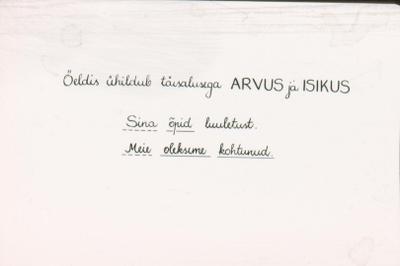 Öeldis ühildub täisalusega ARVUS ja ISIKUS
Sina õpid luuletust.
Meie oleksime kohtunud.